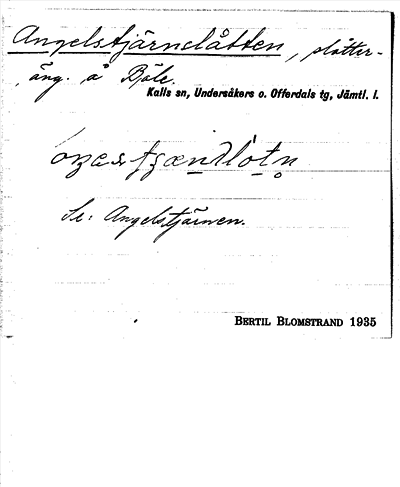 Angelstjärnslåtten, slåtter-
äng. å Bjåle.
Kalls sn, Undersåkers o. Offerdals tg, Jämtl. l.
Se: Angelstjärnen.
BERTIL BLOMSTRAND 1935